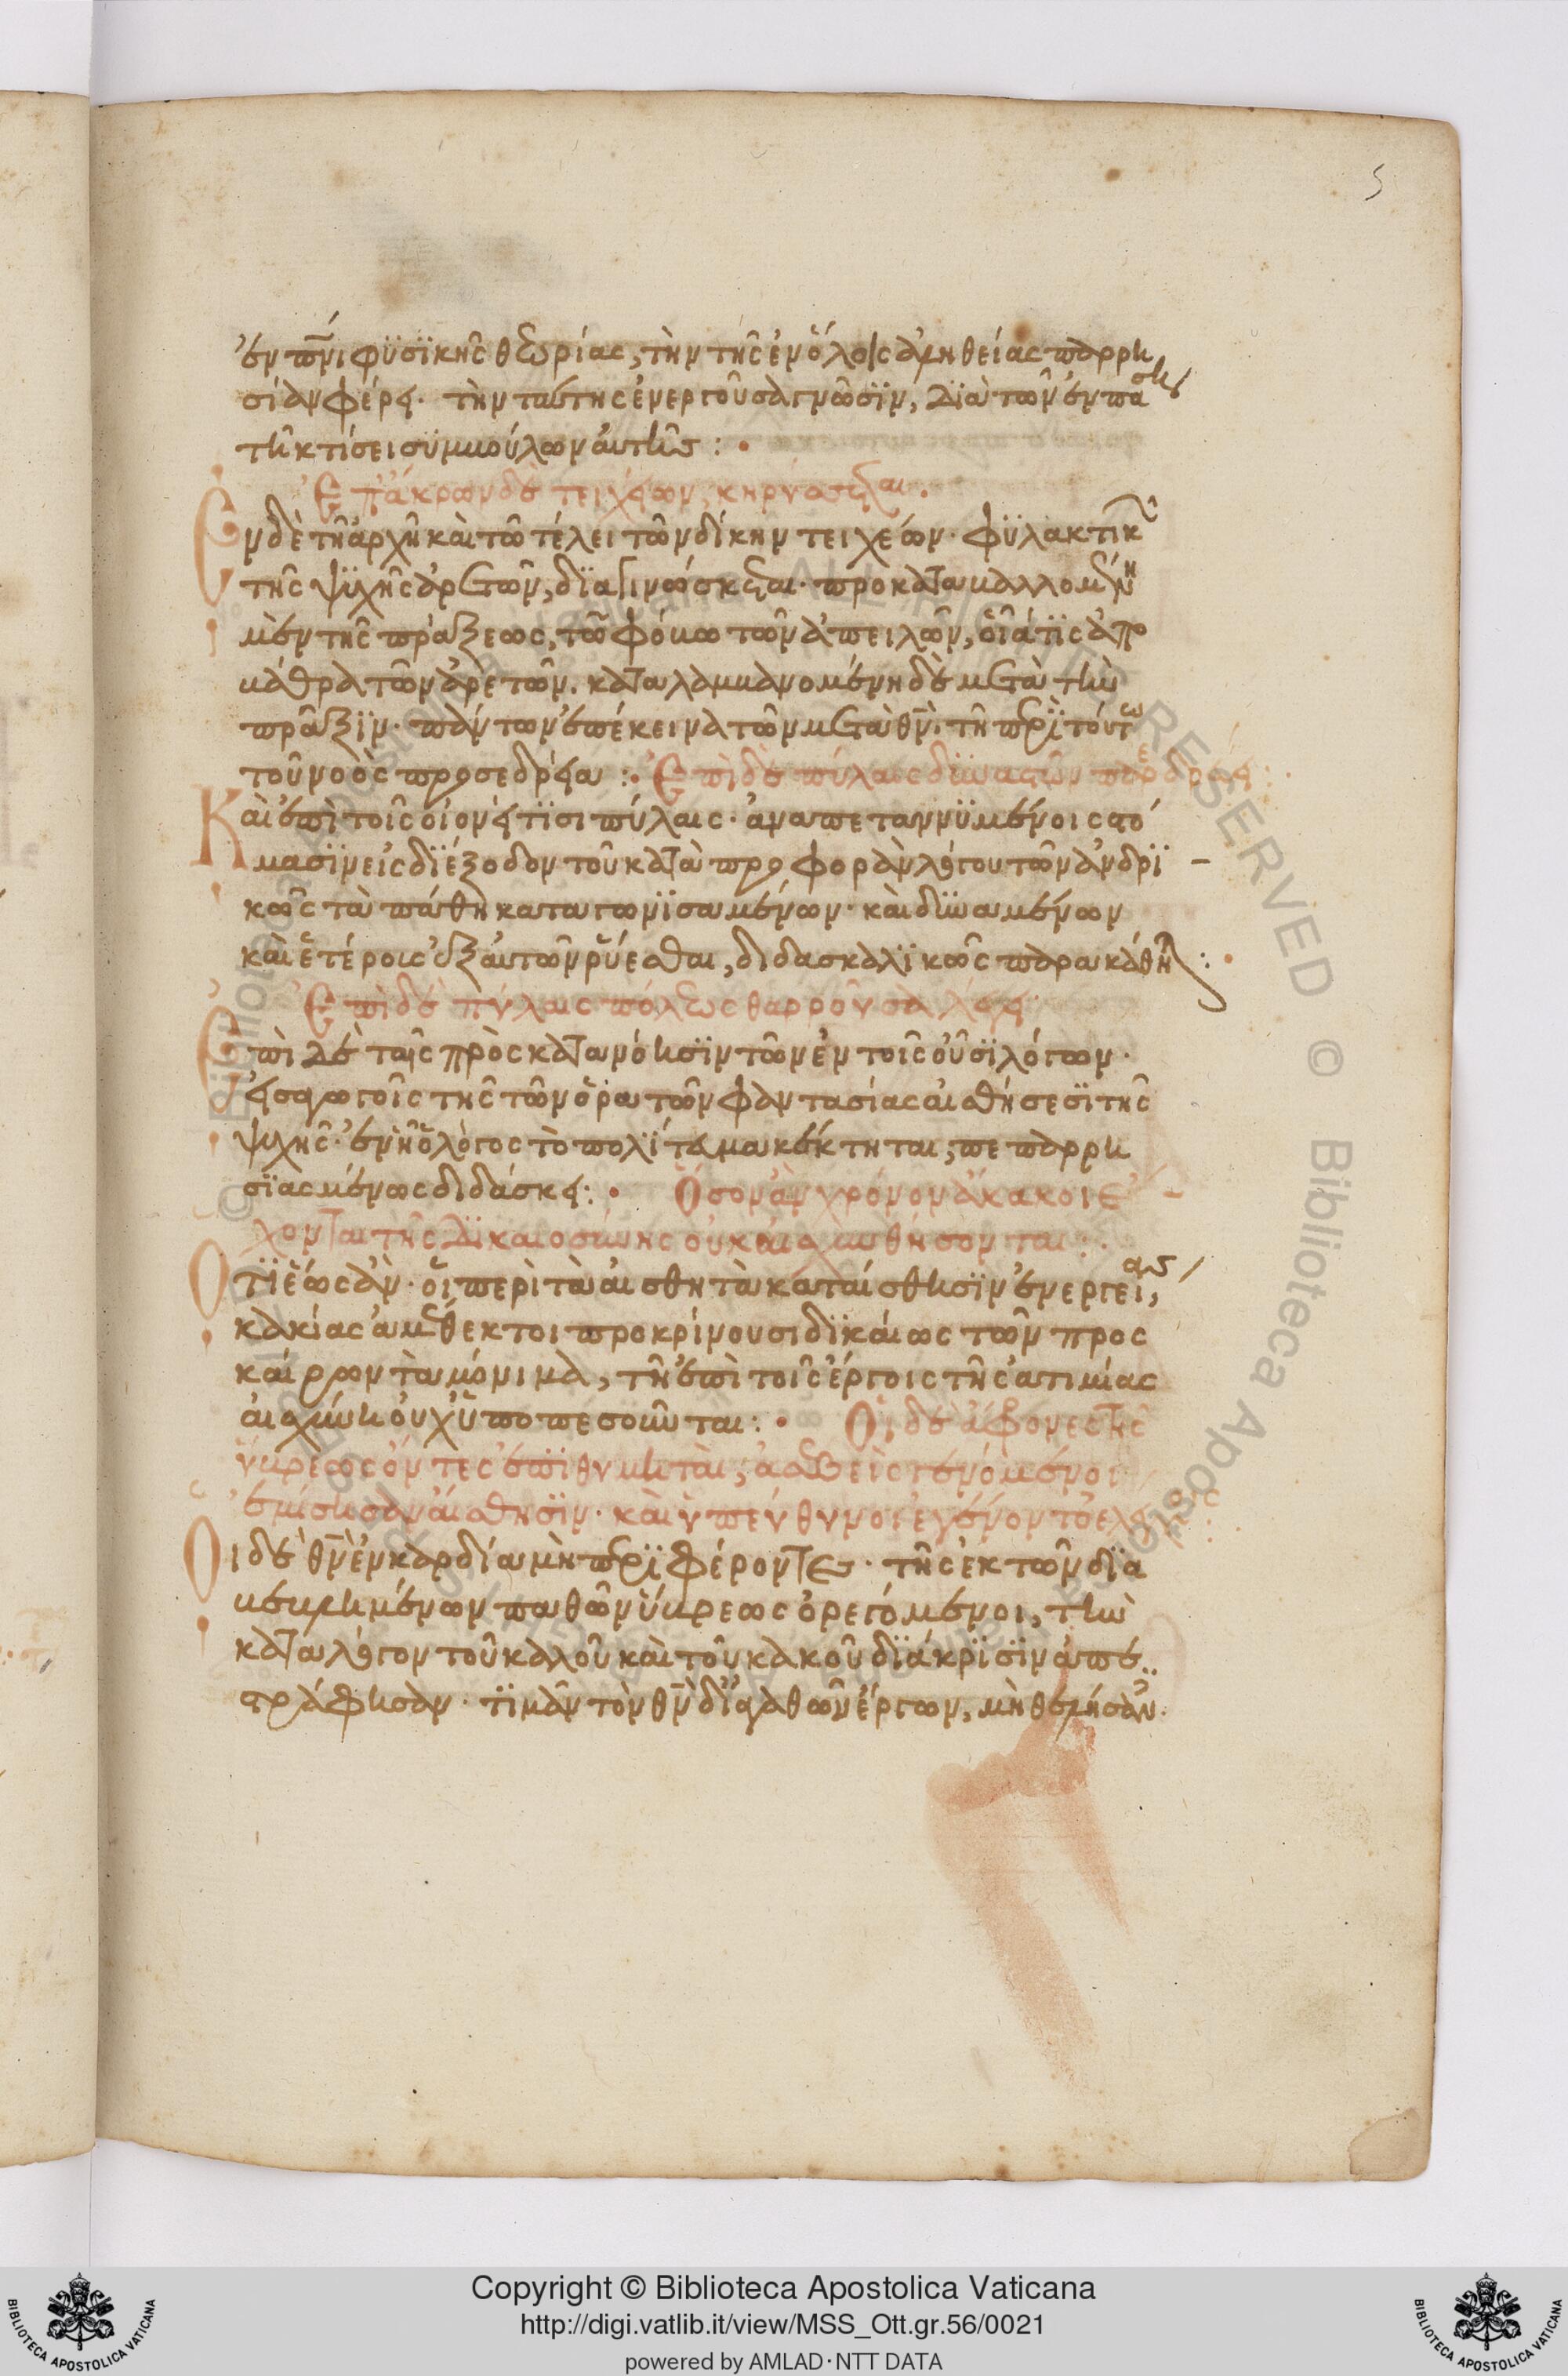 5
ἐν πν̅ι φυσικῆς θεωρίας, τὴν τῆς ἐν ὅλοις ἀληθείας παρρη
σίαν φέρει. τὴν ταύτης ἐνεργοῦσα γνῶσιν, διὰ τῶν ἐν πάσῃ
τῇ κτίσει συμβούλων αὐτῆς :
Ἐπ' ἄκρων δὲ τειχέων κηρύσσεται.
Ἐν δὲ τῇ ἀρχῇ καὶ τῷ τέλει τῶν δίκην τειχέων. φυλακτικῶν
τῆς ψυχῆς ἀρετῶν, διαγινώσκεται. προκαταβαλλομένη
μὲν τῆς πράξεως, τῷ φόβῳ τῶν ἀπειλῶν, οἷά τις
βάθρα τῶν ἀρετῶν. καταλαμβανομένη δὲ μετὰ τὴν
πρᾶξιν. πάντων ἐπέκεινα τῶν μετὰ θν̅. τῇ περὶ τούτω
τοῦ νοὸς προσεδρεία : Ἐπὶ δὲ πύλαις δυναστῶν παρεδρεύει :
Καὶ ἐπὶ τοῖς οἱονεί τισι πύλαις. ἀναπεταννυμένοις στό
μασιν εἰς διέξοδον τοῦ κατὰ προφορὰν λόγου τῶν ἀνδρι –
κῶς τὰ πάθη καταγωνισαμένων. καὶ δυναμένων
καὶ ἑτέροις ἐξ αὐτῶν ῥύεσθαι, διδασκαλικῶς παρακάθηται :
Ἐπὶ δὲ πύλαις πόλεως θαρροῦσα λέγει
Ἐπὶ δὲ ταῖς πρὸς κατανόησιν τῶν ἐν τοῖς οὖσι λόγων.
εἰσαγωγοῖς τῆς τῶν ὁρατῶν φαντασίας αἰσθήσεσι τῆς
ψυχῆς. ἐν ᾗ ὁ λόγος τὸ πολίτευμα κέκτηται, πεπαρρη
σιασμένως διδάσκει : Ὅσον ἂν χρόνον ἄκακοι ἔ –
χονται τῆς δικαιοσύνης οὐκ αἰσχυνθήσονται :
Ὅτι ἕως ἂν. οἱ περὶ τὰ αἰσθητὰ κατ' αἴσθησιν ἐνεργείας,
κακίας ἀμέθεκτοι προκρίνουσι δικαίως τῶν προσ
καίρων τὰ μόνιμα, τῇ ἐπὶ τοῖς ἔργοις τῆς ἀτιμίας
αἰσχύνῃ οὐχ ὑποπεσοῦνται : Οἱ δὲ ἄφρονες τῆς
ὕβρεως ὄντες ἐπιθυμηταί, ἀσεβεῖς γενόμενοι
ἐμίσησαν αἴσθησιν. καὶ ὑπεύθυνοι ἐγένοντο ἐλέγχοις :
Οἱ δὲ θν̅ ἐν καρδία μὴ περιφέροντες. τῆς ἐκ τῶν δια
βεβλημένων παθῶν ὕβρεως ὀρεγόμενοι, τὴν
κατὰ λόγον τοῦ καλοῦ καὶ τοῦ κακοῦ διάκρισιν ἀπε
στράφησαν. τιμᾶν τὸν θν̅ δι' ἀγαθῶν ἔργων, μὴ θελήσαντες.
Copyright © Biblioteca Apostolica Vaticana
http://digi.vatlib.it/view/MSS_Ott.gr.56/0021
powered by AMLAD·NTT DATA